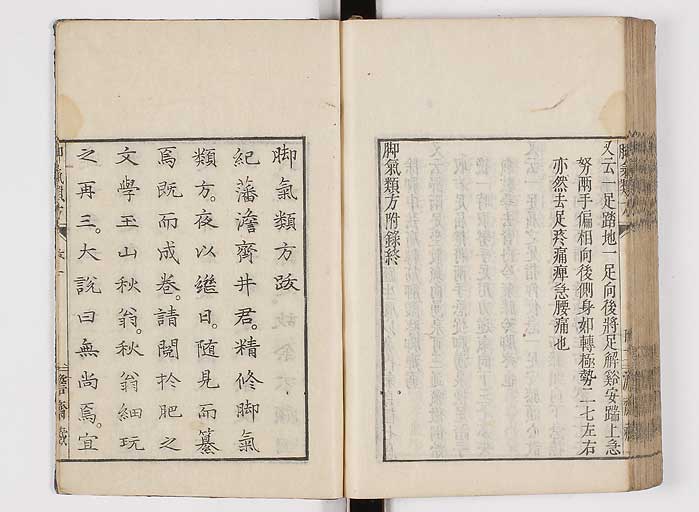 又云一足踏地一足向後將足解谿安踹上急
努兩手偏相向後側身如轉極勢二七左右
亦然去足疼痛痺急腰痛也
脚氣類方附錄終
脚氣類方跋
紀藩澹齊井君精修脚氣
類方夜以繼日隨見而纂
焉既而成卷請閱於肥之
文學玉山秋翁秋翁細玩
之再三大說曰無尚焉宜